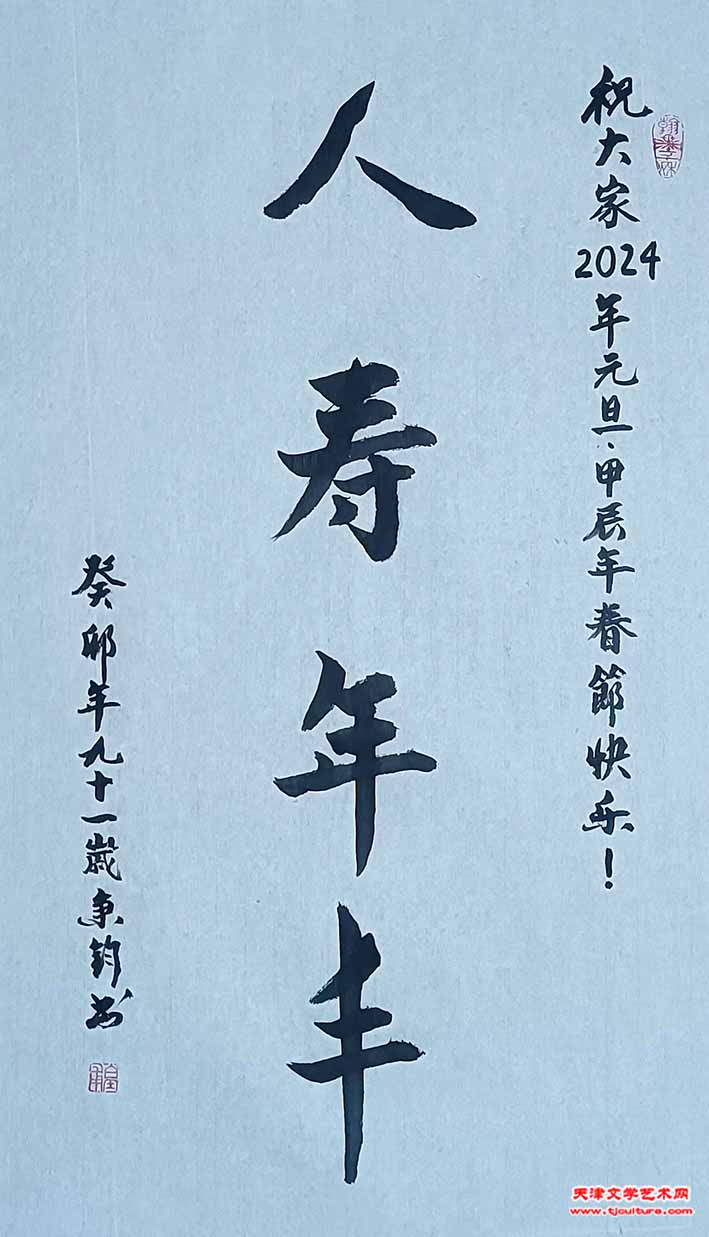 祝大家2024年元旦、甲辰年春節快乐！
人寿年丰
癸卯年九十一歲秉钧书
天津文学艺术网
www.tjculture.com